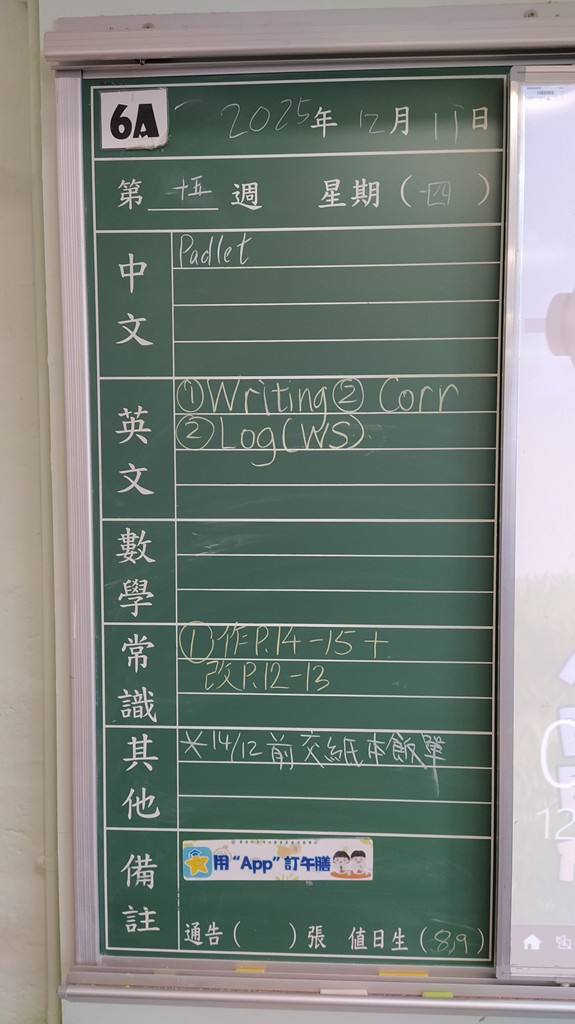 6A 2025年 12月 11日
第 十五 週 星期(四)
中文
Padlet
英文
①Writing② Corr
②Log(WS)
數學
常識
①作P.14-15+
改P.12-13
其他
*14/12前交紙本飯單
備註
用“App”訂午膳
通告( )張 值日生(8,9)
12